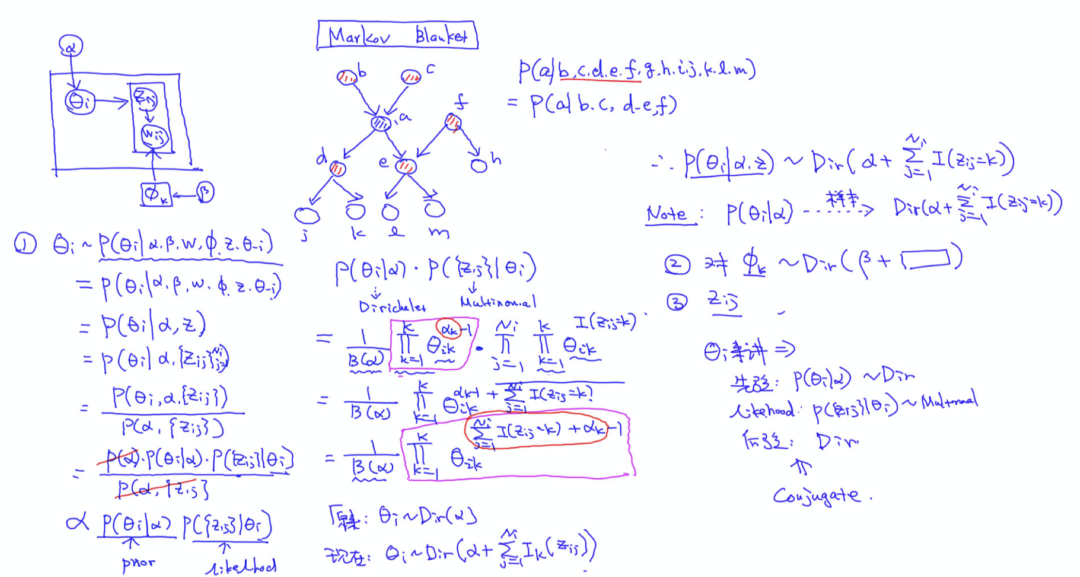 α
θi
zij
wij
ϕk
β
Markov Blanket
b
c
a
f
d
e
h
j
k
l
m
P(a|b,c,d,e,f,g,h,i,j,k,l,m)
= P(a|b,c,d,e,f)
① θi ~ P(θi|α,β,w,ϕ,z,θ-i)
= P(θi|α,β,w,ϕ,z,θ-i)
= P(θi|α,z)
= P(θi|α,{zij}_{j=1}^{Ni})
= P(θi,α,{zij}) / P(α,{zij})
= P(α)·P(θi|α)·P({zij}|θi) / P(α,{zij})
∝ P(θi|α) P({zij}|θi)
prior likelihood
P(θi|α) · P({zij}|θi)
Dirichlet Multinomial
= 1/B(α) ∏_{k=1}^{K} θik^{αk-1} · ∏_{j=1}^{Ni} ∏_{k=1}^{K} θik^{I(zij=k)}
= 1/B(α) ∏_{k=1}^{K} θik^{αk-1 + ∑_{j=1}^{Ni} I(zij=k)}
= 1/B(α) ∏_{k=1}^{K} θik^{∑_{j=1}^{Ni} I(zij=k) + αk-1}
: θi ~ Dir(α)
现在: θi ~ Dir(α + ∑_{j=1}^{Ni} Ik(zij))
∴ P(θi|α,z) ~ Dir(α + ∑_{j=1}^{Ni} I(zij=k))
Note: P(θi|α) 样本 → Dir(α + ∑_{j=1}^{Ni} I(zij=k))
② 对 ϕk ~ Dir(β + □)
③ zij
θi ⇒
先验: P(θi|α) ~ Dir
likelihood: P({zij}|θi) ~ Multinomial
后验: Dir
⇑
Conjugate.